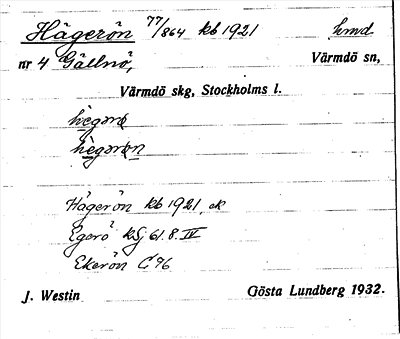 Hägerön 77/864 kb 1921 hmd
nr 4 Gällnö, Värmdö sn,
Värmdö skg, Stockholms l.
hegarö
hegarön
Hägerön kb 1921, ek
Egerö kSj 61.8.IV
Ekerön C96
J. Westin Gösta Lundberg 1932.